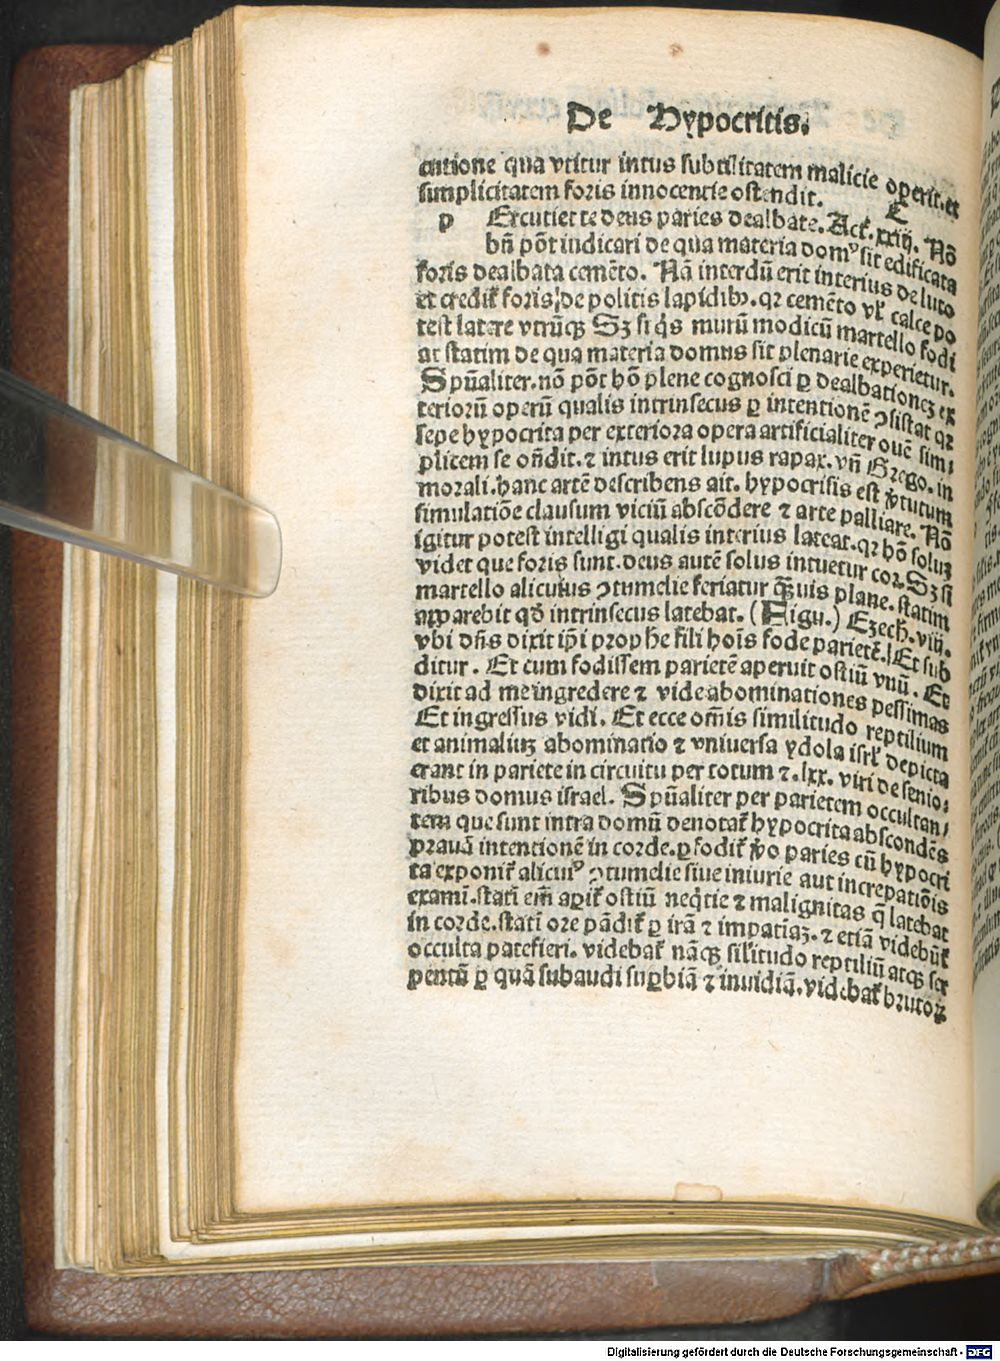 De Hypocritis.
cutione qua vtitur intus subtilitatem malicie operit. et
simplicitatem foris innocentie ostendit. C
p Excutiet te deus paries dealbate. Act. xxiij. Nō
bn̄ pōt iudicari de qua materia domꝰ sit edificata
foris dealbata cemēto. Nā interdū erit interius de luto
et credit᷑ foris de politis lapidibꝫ. qꝛ cemēto vl̓ calce po
test latere vtrūqꝫ Sꝫ si q̓s murū modicū martello fodi
at statim de qua materia domus sit plenarie experietur.
Spūaliter. nō pōt hō plene cognosci ꝑ dealbationeꝫ ex
teriorū operū qualis intrinsecus ꝑ intentionē ꝯsistat qꝛ
sepe hypocrita per exteriora opera artificialiter ouē sim⸗
plicem se on̄dit. ⁊ intus erit lupus rapax. vn̄ Grego. in
morali. hanc artē describens ait. hypocrisis est v̓tutum
simulatiōe clausum viciū abscōdere ⁊ arte palliare. Nō
igitur potest intelligi qualis interius lateat. qꝛ hō soluꝫ
videt que foris sunt. deus autē solus intuetur cor. Sꝫ si
martello alicuius ꝯtumelie feriatur q̄ꝫuis plane. statim
apparebit qd̓ intrinsecus latebat. (Figu.) Ezech. viij.
vbi dn̄s dixit ip̄i prophe fili hois̄ fode parietē. Et sub
ditur. Et cum fodissem parietē aperuit ostiū vnū. Et
dixit ad me ingredere ⁊ vide abominationes pessimas
Et ingressus vidi. Et ecce om̄is similitudo reptilium
et animaliuꝫ abominatio ⁊ vniuersa ydola isrl̓ depicta
erant in pariete in circuitu per totum ⁊. lxx. viri de senio⸗
ribus domus israel. Spūaliter per parietem occultan⸗
tem que sunt intra domū denotat᷑ hypocrita abscondēs
prauā intentionē in corde. ꝑfodit᷑ v̓o paries cū hypocri
ta exponit᷑ alicuiꝰ ꝯtumelie siue iniurie aut increpatiōis
examī. statī em̄ apit᷑ ostiū neq̓tie ⁊ malignitas q̄ latebat
in corde. statī ore pādit᷑ ꝑ irā ⁊ impatīaꝫ. ⁊ etiā videbūt᷑
occulta patefieri. videbat᷑ nāqꝫ sil̓itudo reptiliū atqꝫ ser
pentū ꝑ quā subaudi suꝑbiā ⁊ inuidiā. videbat᷑ brutoꝝ
Digitalisierung gefördert durch die Deutsche Forschungsgemeinschaft - DFG